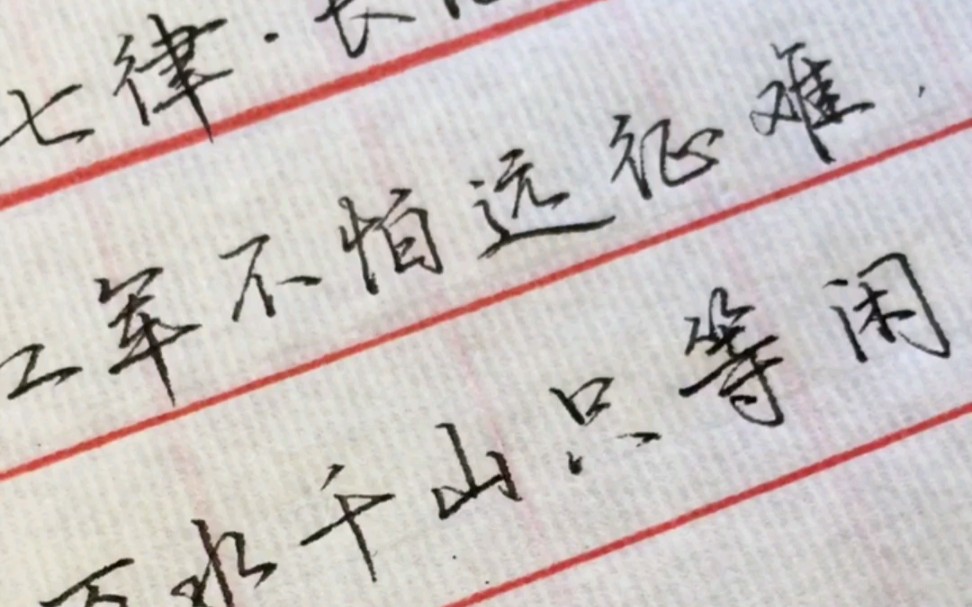 七律·长
军不怕远征难，
万水千山只等闲